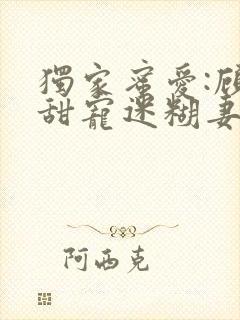 獨家蜜愛:顧
甜寵迷糊妻
阿西克